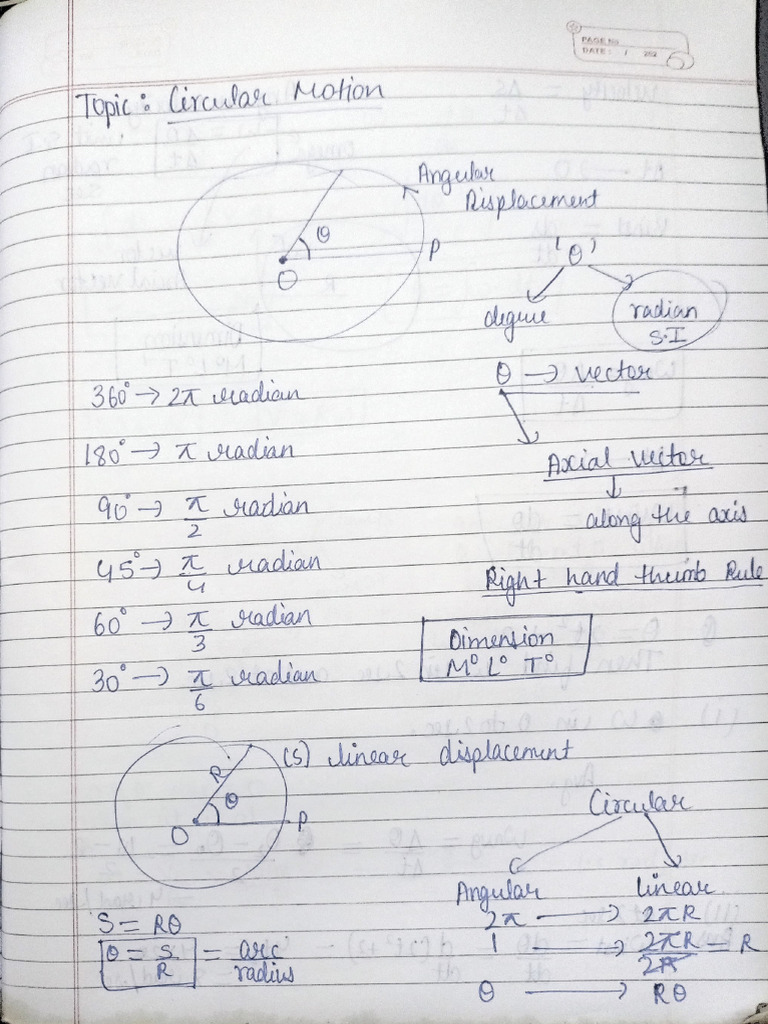 PAGE No
DATE: / 202
Topic: Circular Motion
Angular
Displacement
θ
P
O
'θ'
degree
radian
S.I
θ → vector
Axial vector
↓
along the axis
Right hand thumb Rule
360° → 2π radian
180° → π radian
90° → π/2 radian
45° → π/4 radian
60° → π/3 radian
30° → π/6 radian
Dimension
M° L° T°
(S) linear displacement
R
θ
O
P
S = Rθ
θ = S/R = arc/radius
Circular
Angular linear
2π → 2πR
1 → 2πR/2π = R
θ → Rθ